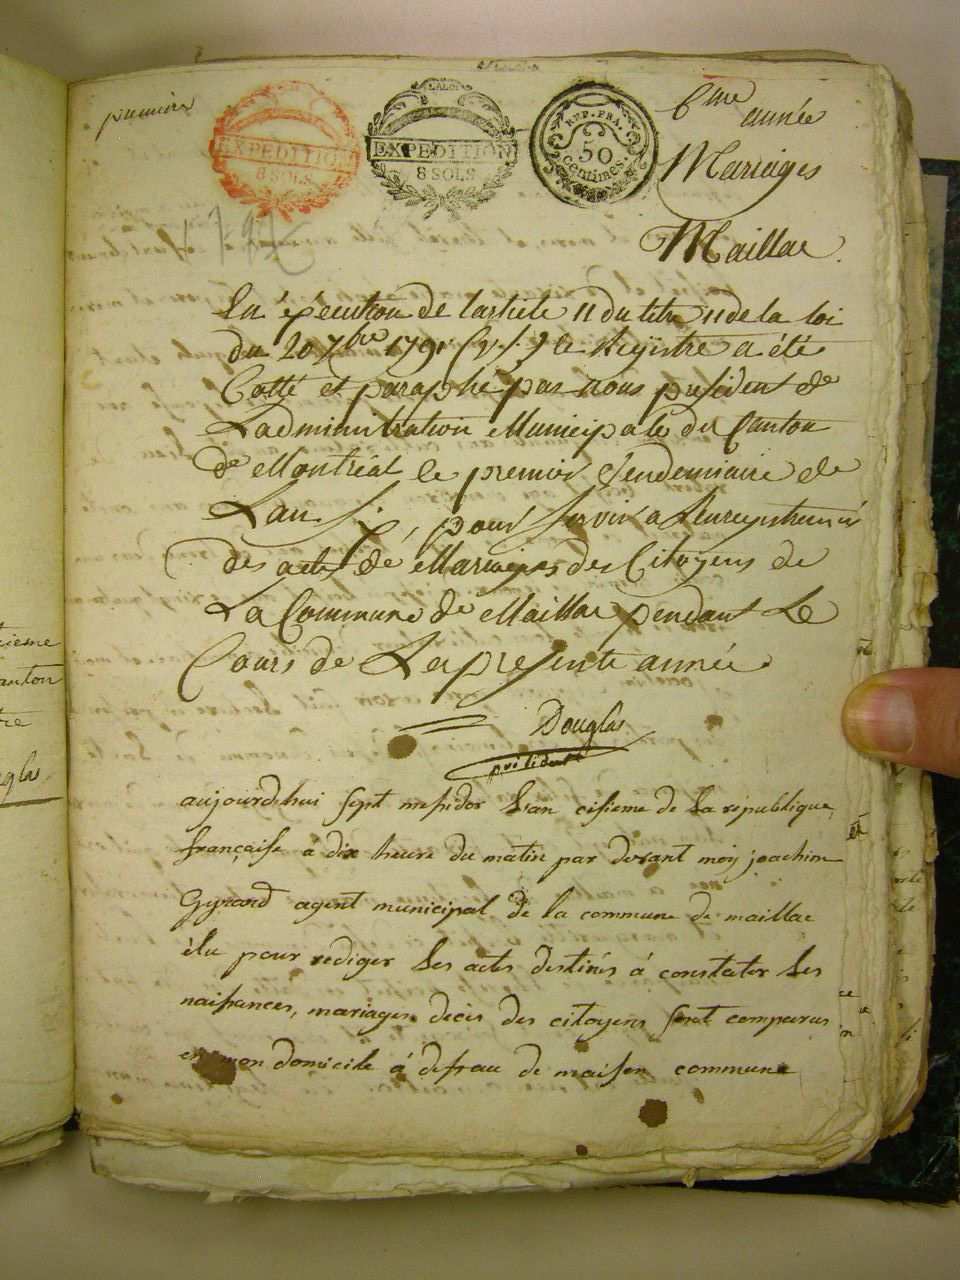 premier
EXPEDITION
8 SOLS
LALOI
EXPEDITION
8 SOLS
REP. FRA.
50
centimes.
6eme
année
Mariages
Maillac
1797
En éxécution de l'article 11 du titre 11 de la loi
du 20 7bre 1791 (v.s.) le Registre a été
Cotté et paraphé par nous président de
L'administration Municipale du Canton
de Montréal le premier Vendemiaire de
L'an Six, pour servir a L'enregistrement
des actes de Mariages des Citoyens de
La Commune de Maillac pendant Le
Cours de La presente année
Douglas
président
aujourdehui sept mesidor L'an cisieme de la république
française à dix heure du matin par devant moy joachim
Gyrard agent municipal de la commune de maillac
élu pour rediger Les actes destinés à constater Les
naissances, mariages decés des citoyens sont comparus
en mon domicile à defrau de maison commune
ieme
anton
tre
glas